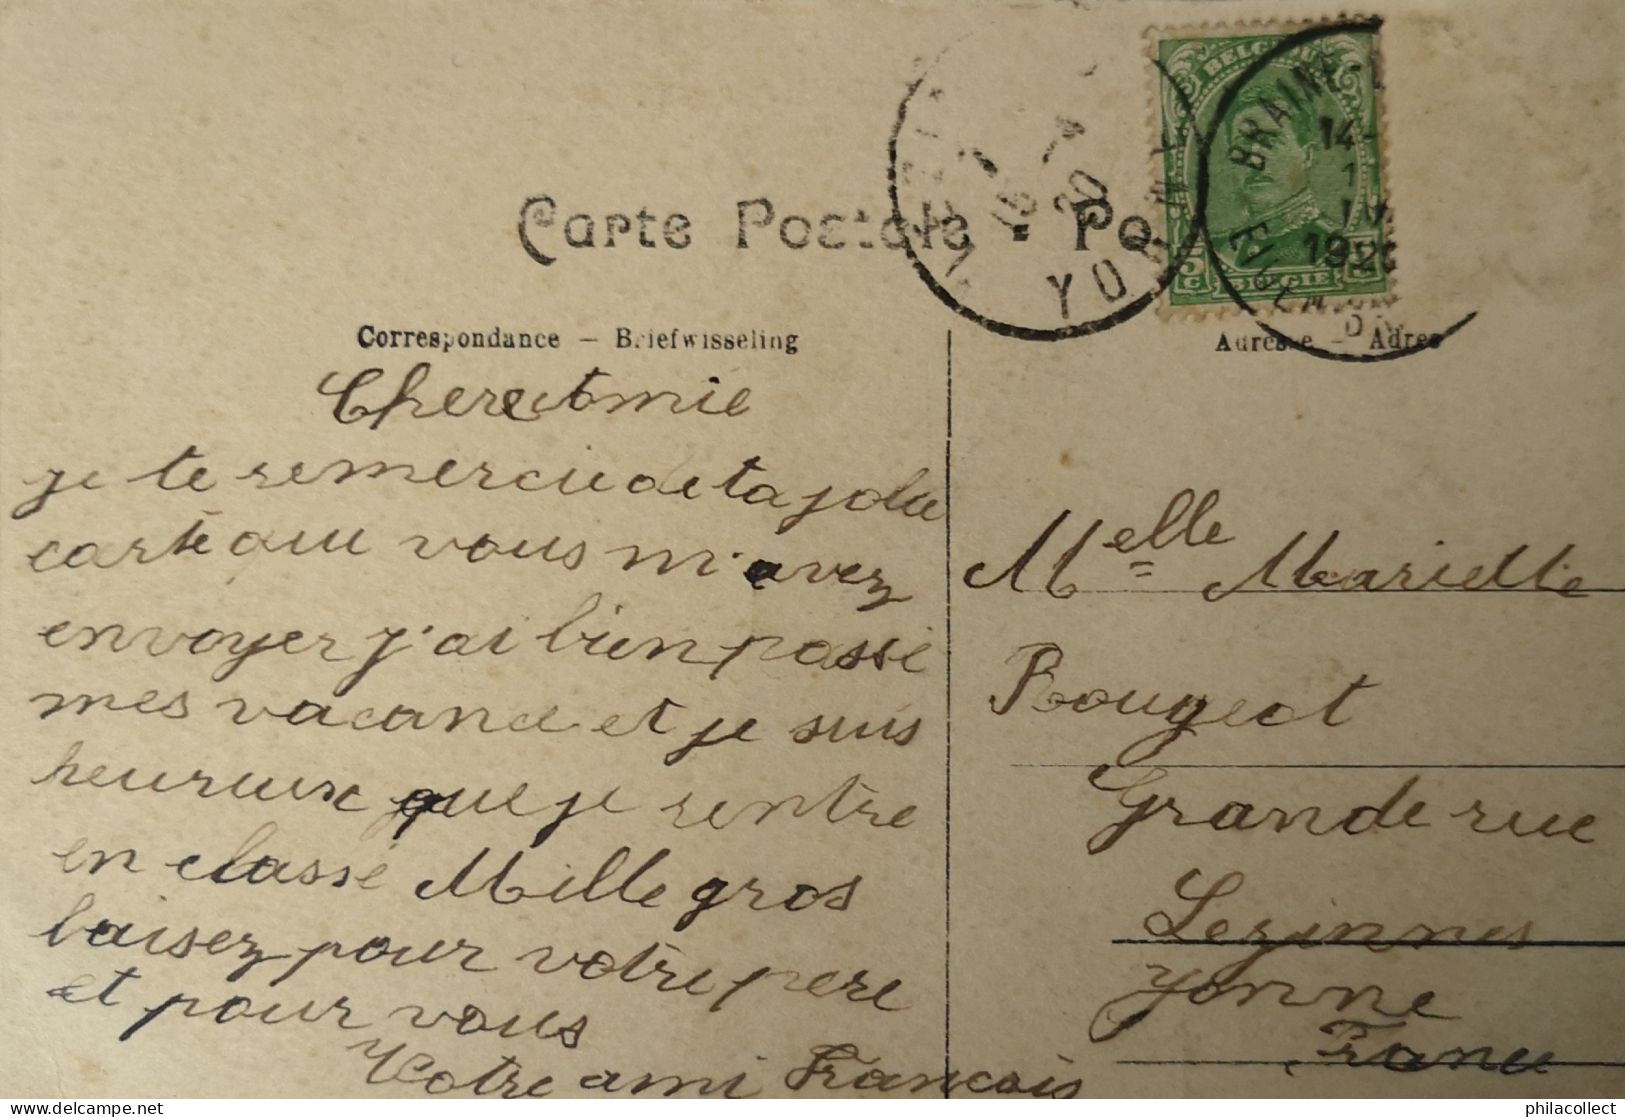 Carte Postale - Po
BELGIQUE
5 c
BELGIE
BRAINE-
14-
1920
EIGEN
YONNE
20
Correspondance – Briefwisseling
Adresse – Adres
Chere Amie
je te remercie de ta jolie
carte que vous m'avez
envoyer j'ai bien passé
mes vacance et je suis
heureux que je rentre
en classe Mille gros
baisez pour votre pere
et pour vous
Votre ami Francois
Melle Mariette
Rougeot
Grande rue
Lezinnes
Yonne
France
philacollect